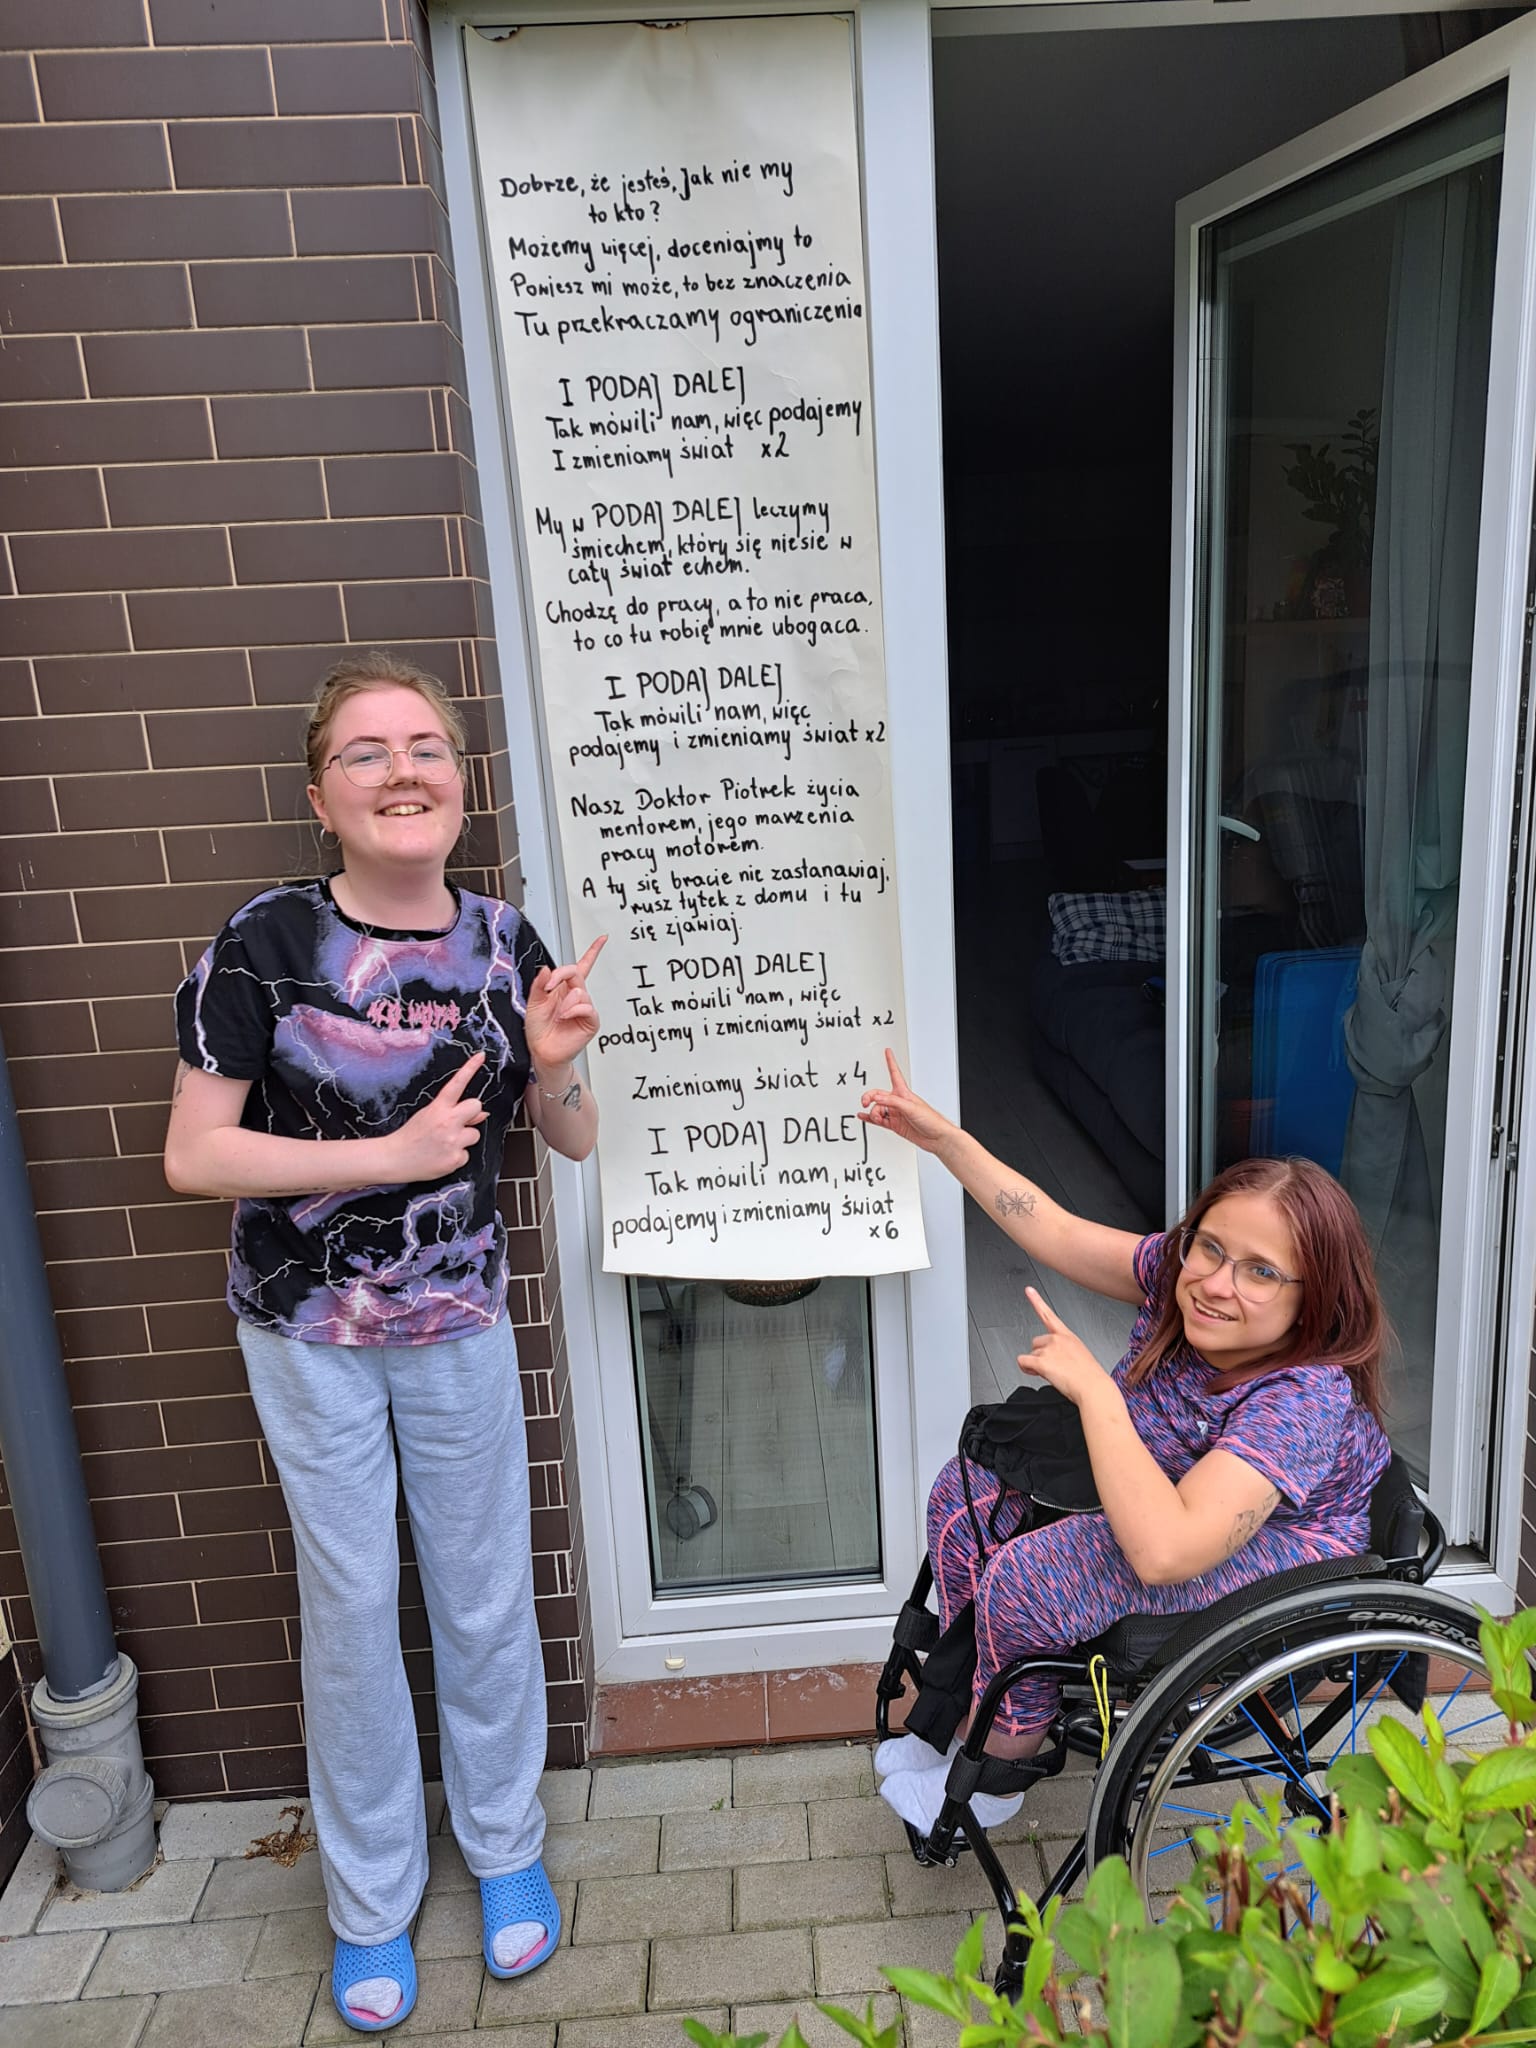 Dobrze, że jesteś, Jak nie my
to kto?
Możemy więcej, doceniajmy to
Powiesz mi może, to bez znaczenia
Tu przekraczamy ograniczenia
I PODAJ DALEJ
Tak mówili nam, więc podajemy
I zmieniamy świat x2
My w PODAJ DALEJ leczymy
śmiechem, który się niesie w
cały świat echem.
Chodzę do pracy, a to nie praca,
to co tu robię mnie ubogaca.
I PODAJ DALEJ
Tak mówili nam, więc
podajemy i zmieniamy świat x2
Nasz Doktor Piotrek życia
mentorem, jego marzenia
pracy motorem.
A ty się bracie nie zastanawiaj,
rusz tyłek z domu i tu
się zjawiaj.
I PODAJ DALEJ
Tak mówili nam, więc
podajemy i zmieniamy świat x2
Zmieniamy świat x4
I PODAJ DALEJ
Tak mówili nam, więc
podajemy i zmieniamy świat
x6
SCHWALBE RIGHTRUN
SPINERG